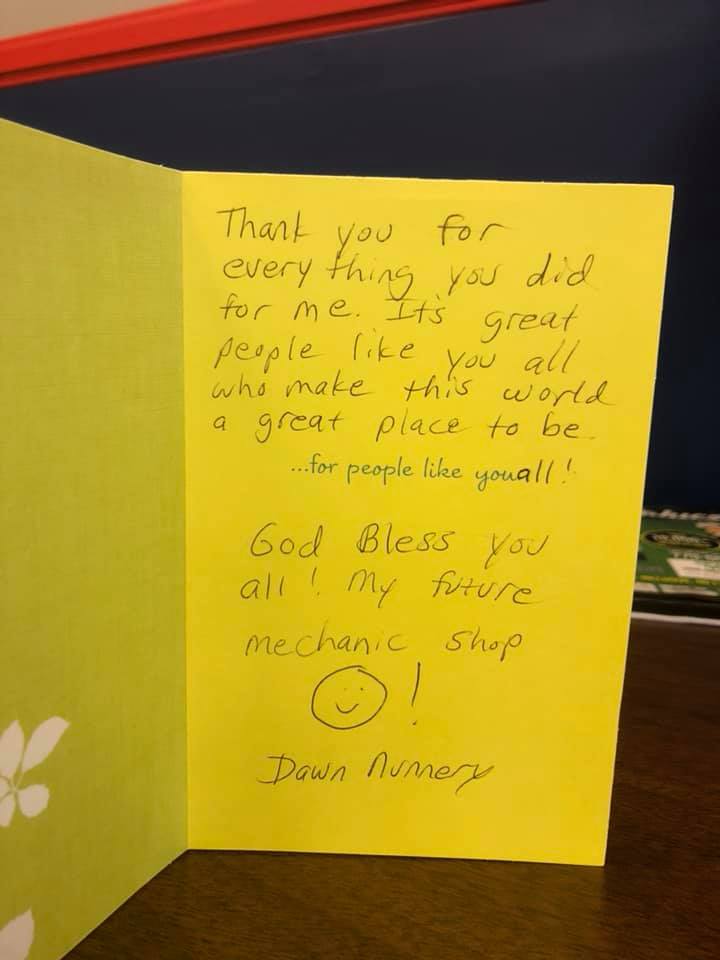 Thank you for
every thing you did
for me. It's great
people like you all
who make this world
a great place to be
...for people like youall!
God Bless you
all! My future
mechanic shop
!
Dawn Nunnery